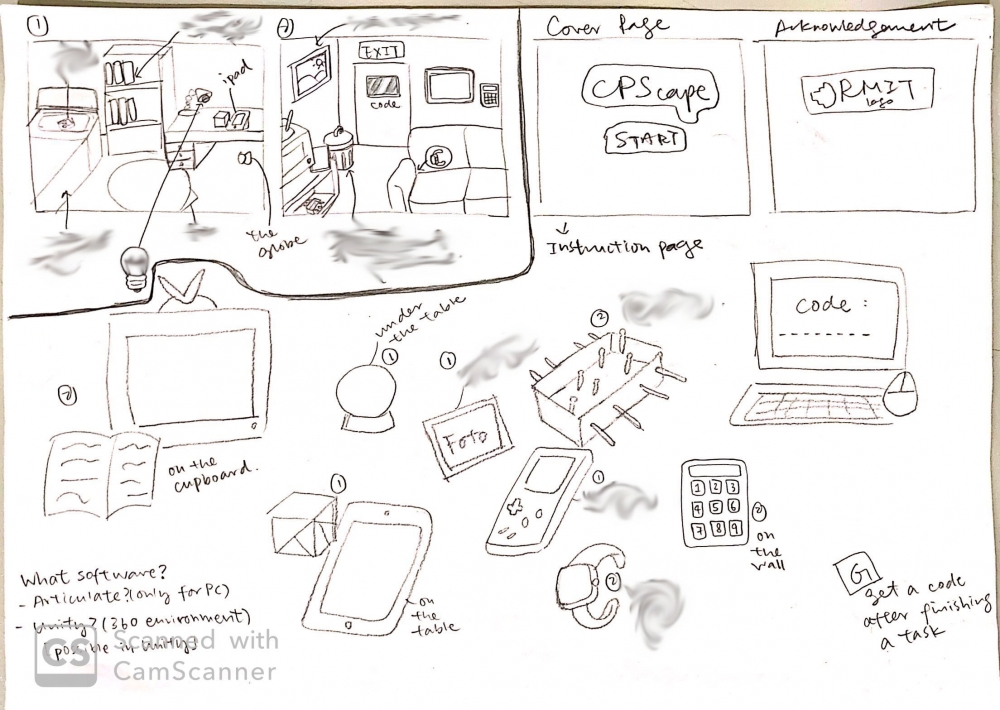 1
ipad
the globe
2
EXIT
code
C
Cover Page
CPScape
START
Instruction page
Acknowledgement
RMIT
logo
2
on the
cupboard.
under
the table
1
1
Foto
2
code :
1
on
the
table
1
2
1 2 3
4 5 6
7 8 9
2
on
the
wall
G
get a code
after finishing
a task
What software?
- Articulate? (only for PC)
- Unity? (360 environment)
CS Scanned with
CamScanner